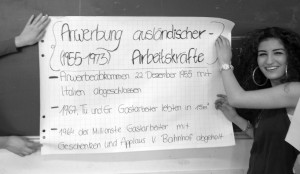 Anwerbung ausländischer
(1955-1973) Arbeitskräfte
- Anwerbeabkommen 22 Dezember 1955 mit
Italien abgeschlossen
- 1961: Tü und Gr Gastarbeiter lebten in
- 1964 der Millionste Gastarbeiter mit
Geschenken und Applaus v. Bahnhof abgeholt